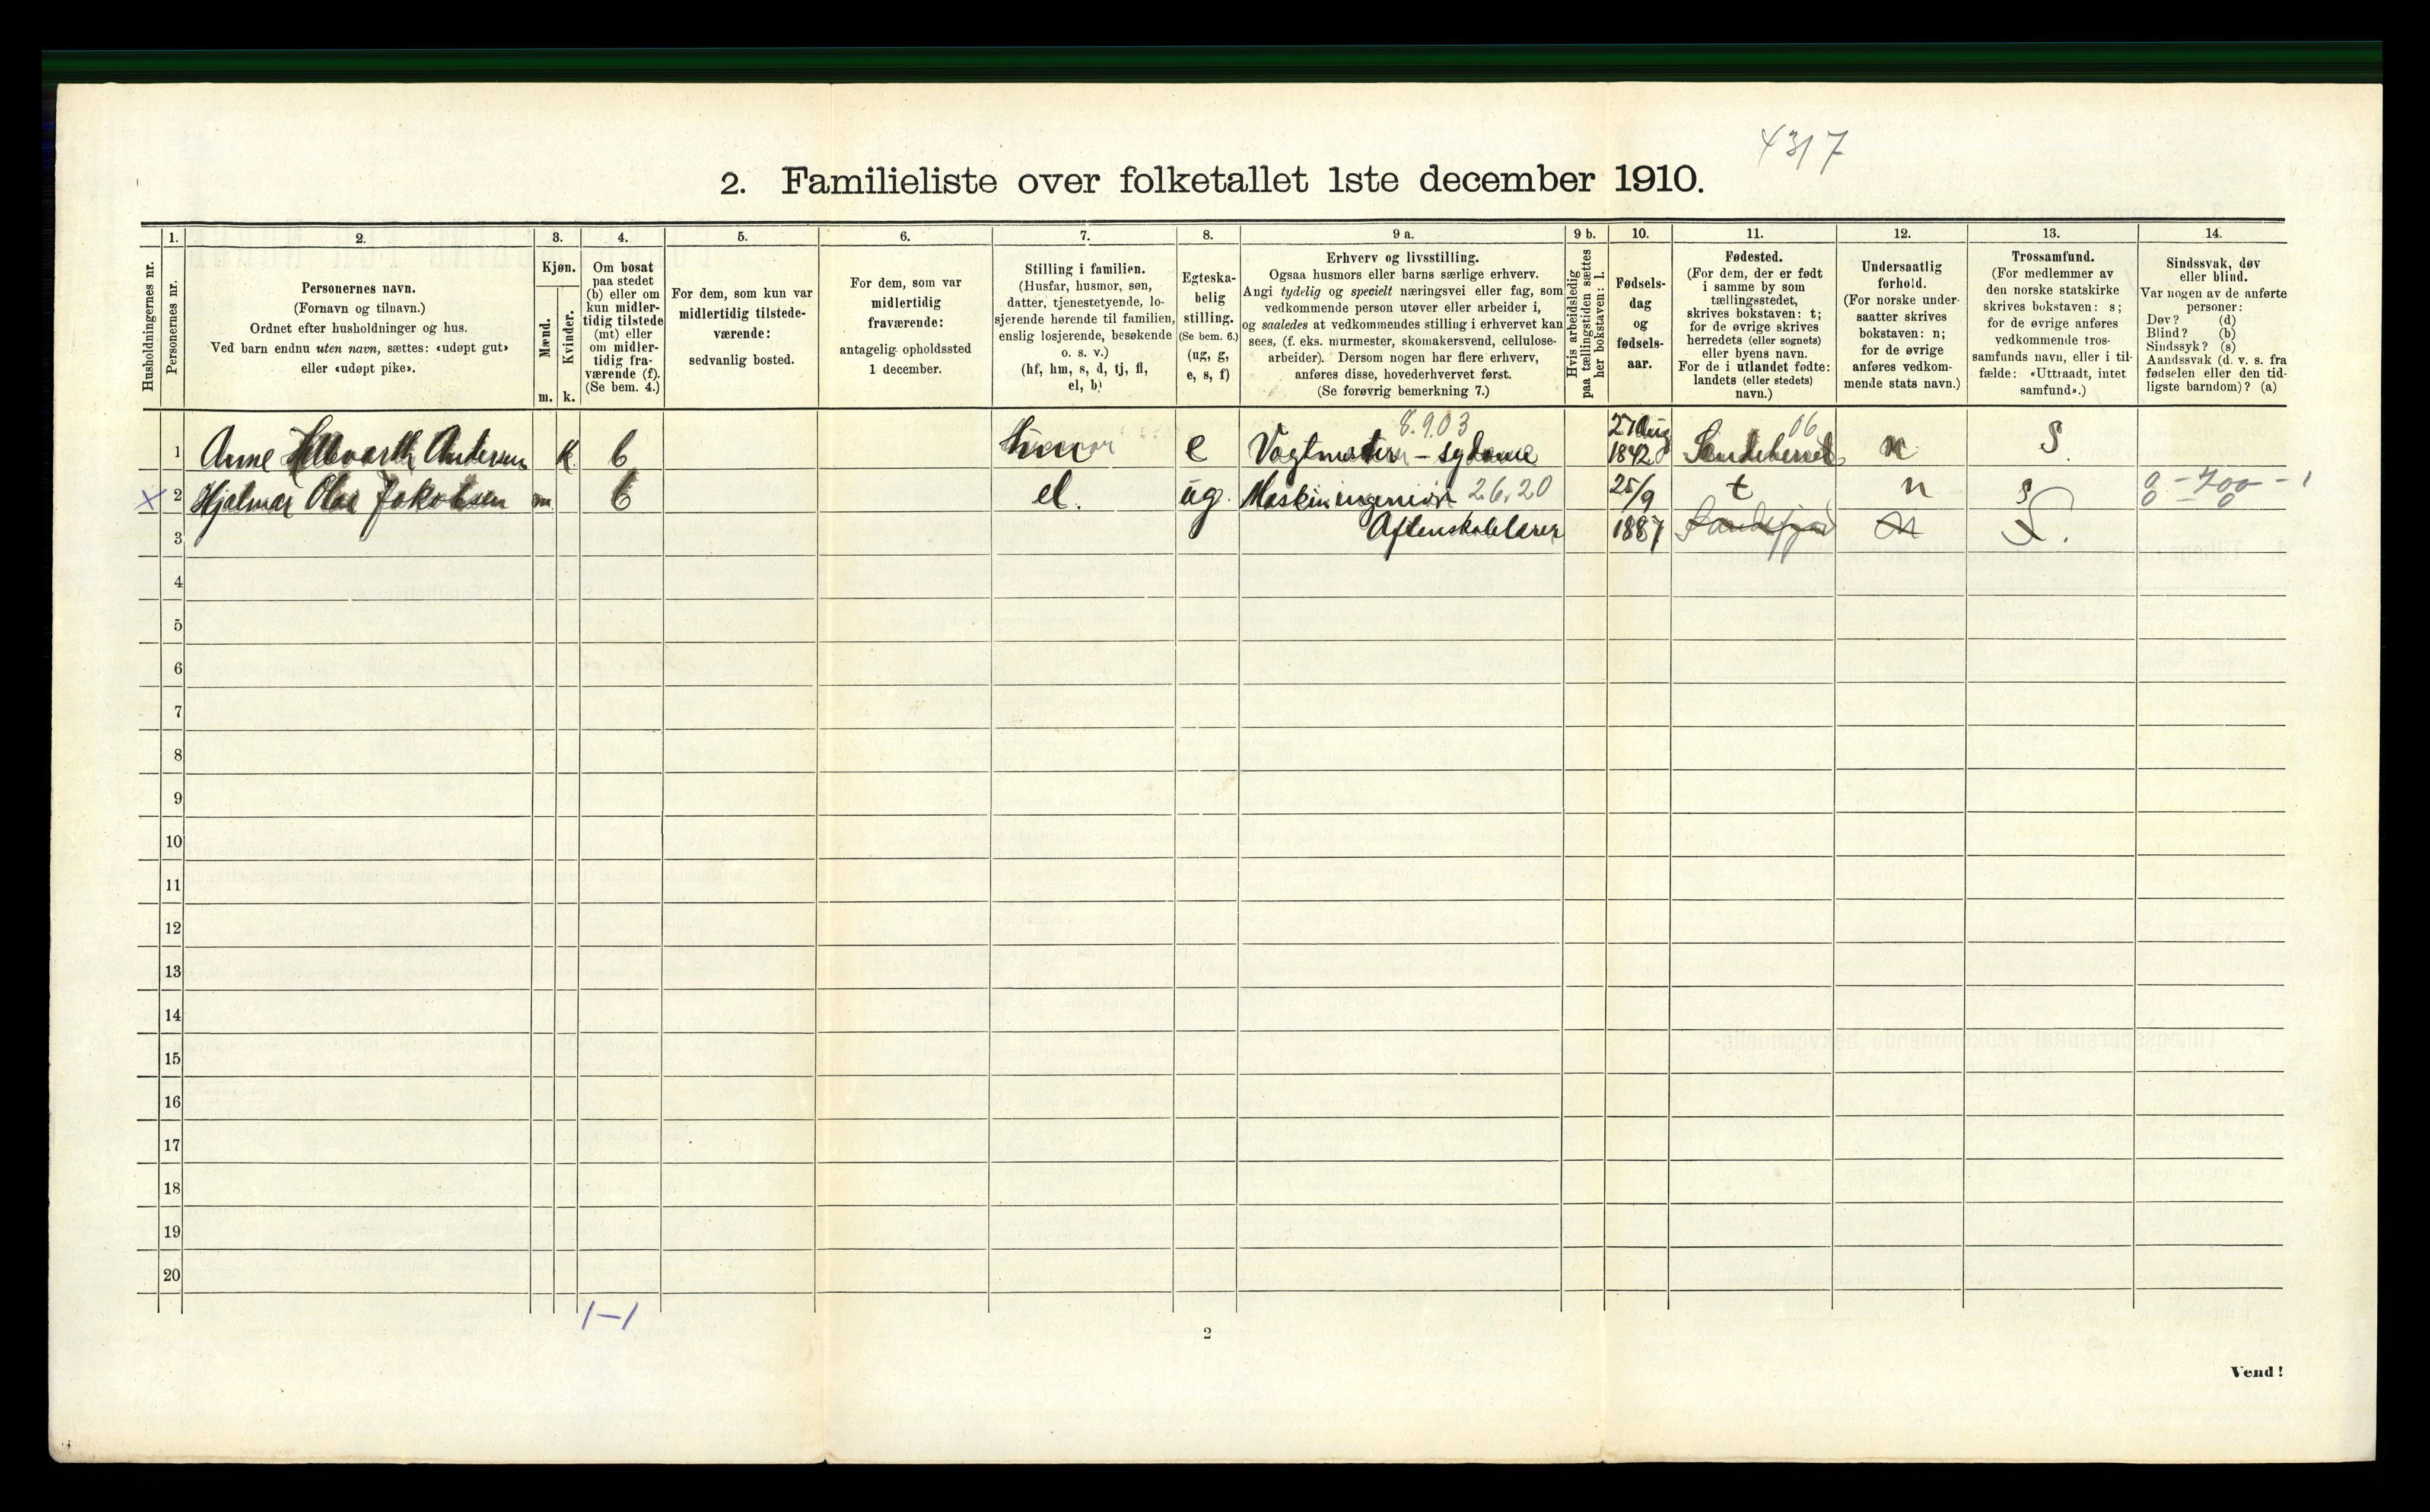 4317
2. Familieliste over folketallet 1ste december 1910.
1. 2. 3. 4. 5. 6. 7. 8. 9 a. 9 b. 10. 11. 12. 13. 14.
Husholdningernes nr.
Personernes nr.
Personernes navn.
(Fornavn og tilnavn.)
Ordnet efter husholdninger og hus.
Ved barn endnu uten navn, sættes: «udøpt gut»
eller «udøpt pike».
Kjøn.
Mænd.
Kvinder.
m. k.
Om bosat
paa stedet
(b) eller om
kun midler-
tidig tilstede
(mt) eller
om midler-
tidig fra-
værende (f).
(Se bem. 4.)
For dem, som kun var
midlertidig tilstede-
værende:
sedvanlig bosted.
For dem, som var
midlertidig
fraværende:
antagelig opholdssted
1 december.
Stilling i familien.
(Husfar, husmor, søn,
datter, tjenestetyende, lo-
sjerende hørende til familien,
enslig losjerende, besøkende
o. s. v.)
(hf, hm, s, d, tj, fl,
el, b)
Egteska-
belig
stilling.
(Se bem. 6.)
(ug, g,
e, s, f)
Erhverv og livsstilling.
Ogsaa husmors eller barns særlige erhverv.
Angi tydelig og specielt næringsvei eller fag, som
vedkommende person utøver eller arbeider i,
og saaledes at vedkommendes stilling i erhvervet kan
sees, (f. eks. murmester, skomakersvend, cellulose-
arbeider). Dersom nogen har flere erhverv,
anføres disse, hovederhvervet først.
(Se forøvrig bemerkning 7.)
Hvis arbeidsledig
paa tællingstiden sættes
her bokstaven: l.
Fødsels-
dag
og
fødsels-
aar.
Fødested.
(For dem, der er født
i samme by som
tællingsstedet,
skrives bokstaven: t;
for de øvrige skrives
herredets (eller sognets)
eller byens navn.
For de i utlandet fødte:
landets (eller stedets)
navn.)
Undersaatlig
forhold.
(For norske under-
saatter skrives
bokstaven: n;
for de øvrige
anføres vedkom-
mende stats navn.)
Trossamfund.
(For medlemmer av
den norske statskirke
skrives bokstaven: s;
for de øvrige anføres
vedkommende tros-
samfunds navn, eller i til-
fælde: «Uttraadt, intet
samfund».)
Sindssvak, døv
eller blind.
Var nogen av de anførte
personer:
Døv? (d)
Blind? (b)
Sindssyk? (s)
Aandssvak (d. v. s. fra
fødselen eller den tid-
ligste barndom)? (a)
8.9.03 27 Aug 06
1 Anne Andersen k b hm e – sydame 1842 n S.
X 2 Hjalmar Olai Jakobsen m b el. ug. Maskiningeniør 26.20 25/9 t n s 0 - 700 - 1
0 - 0
3 Aftenskolelærer 1887 Sandefjord n S.
4
5
6
7
8
9
10
11
12
13
14
15
16
17
18
19
20
1–1
2
Vend!